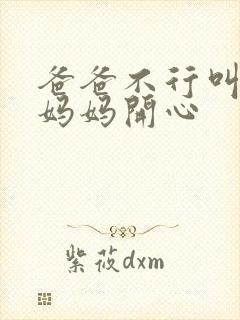 爸爸不行叫
妈妈開心
紫莜dxm